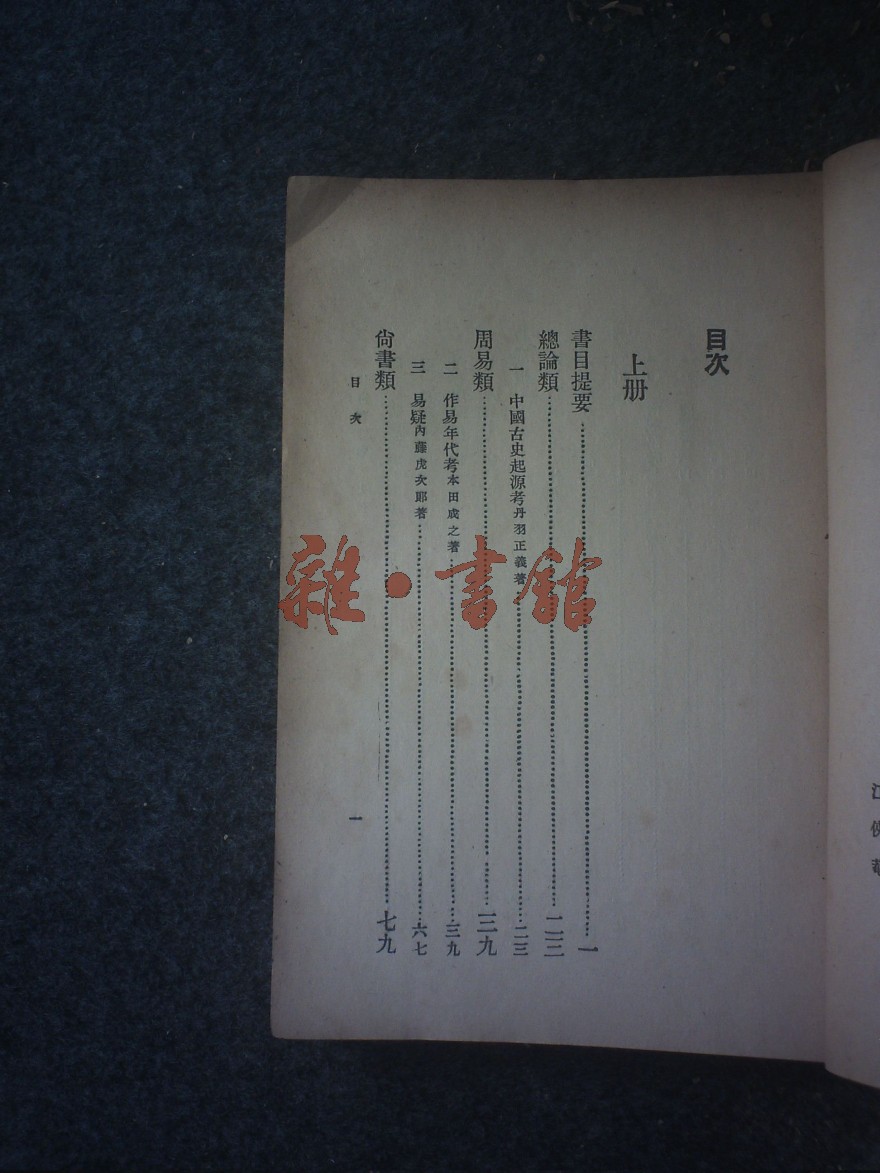 目次
上册
書目提要……一
總論類……二三
一 中國古史起源考丹羽正義著……二三
周易類……三九
二 作易年代考本田成之著……三九
三 易疑內藤虎次郎著……六七
尙書類……七九
目次 一
雜·書館